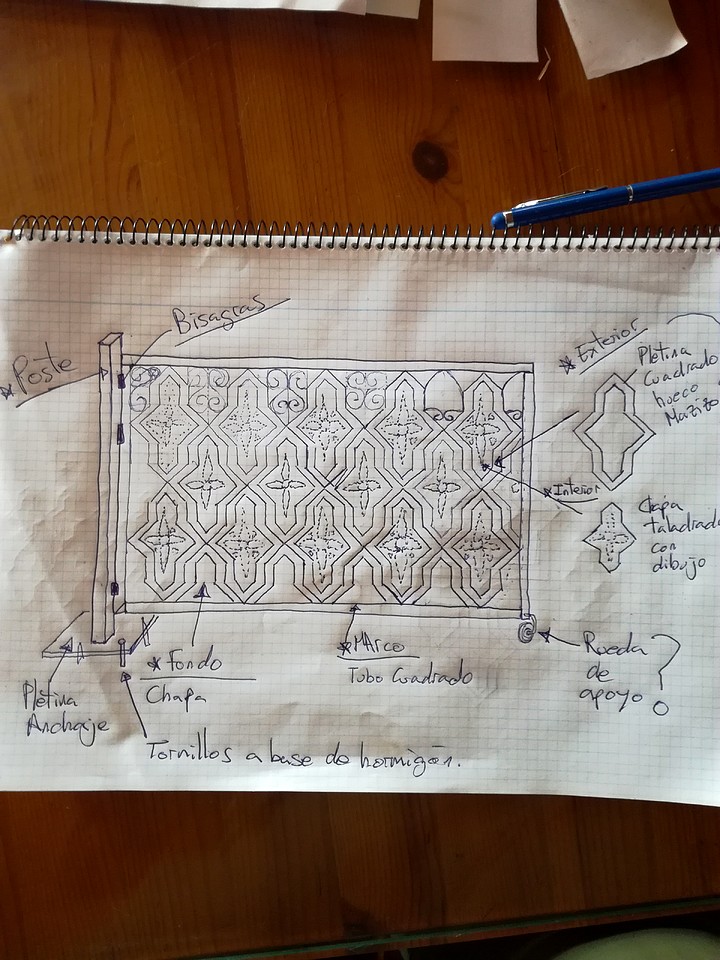 Bisagras
* Poste
* Exterior
Pletina
Cuadrado
hueco
Mazizo
?
* Interior
Chapa
taladrada
con
dibujo
* Fondo
Chapa
* MArco
Tubo Cuadrado
Rueda
de
apoyo ?
Pletina
Anchaje
Tornillos a base de hormigón.